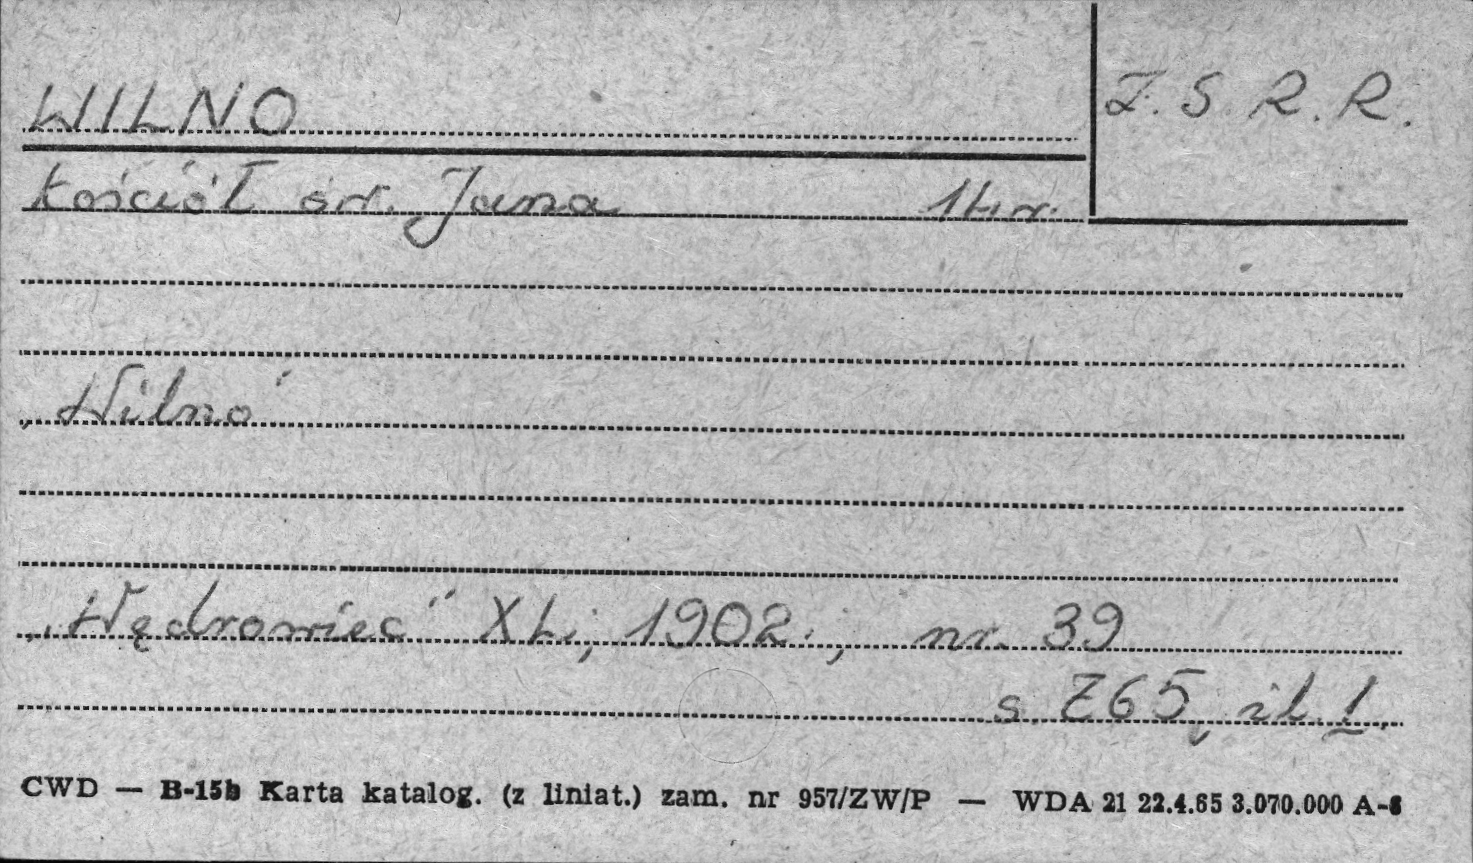 WILNO
Z. S. R. R.
Kościół św. Jana 14 w.
„Wilno"
„Wędrowiec" XL; 1902.; nr. 39
s. 765, il. 1.
CWD — B-15b Karta katalog. (z liniat.) zam. nr 957/ZW/P — WDA 21 22.4.65 3.070.000 A-6